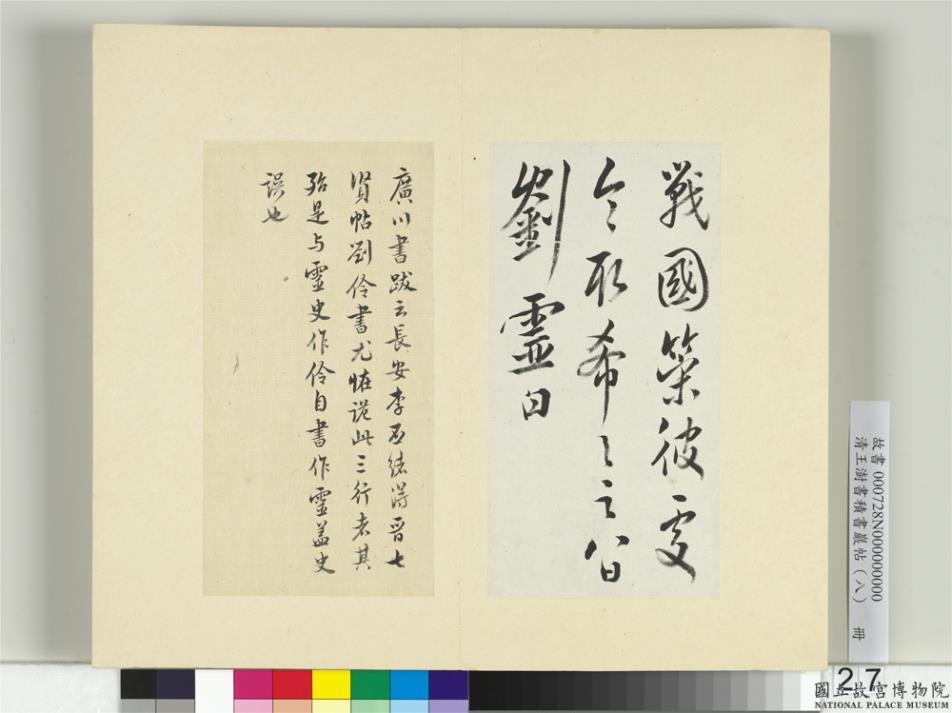 戰國策彼處
今取希之之八日
劉靈白
廣川書跋云長安李丕緒得晉七
賢帖劉伶書尤怪詭此三行者其
殆是与靈史作伶自書作靈蓋史
誤也
故書000728N000000000
清王澍書積書巖帖(八) 冊
27
國立故宮博物院
NATIONAL PALACE MUSEUM